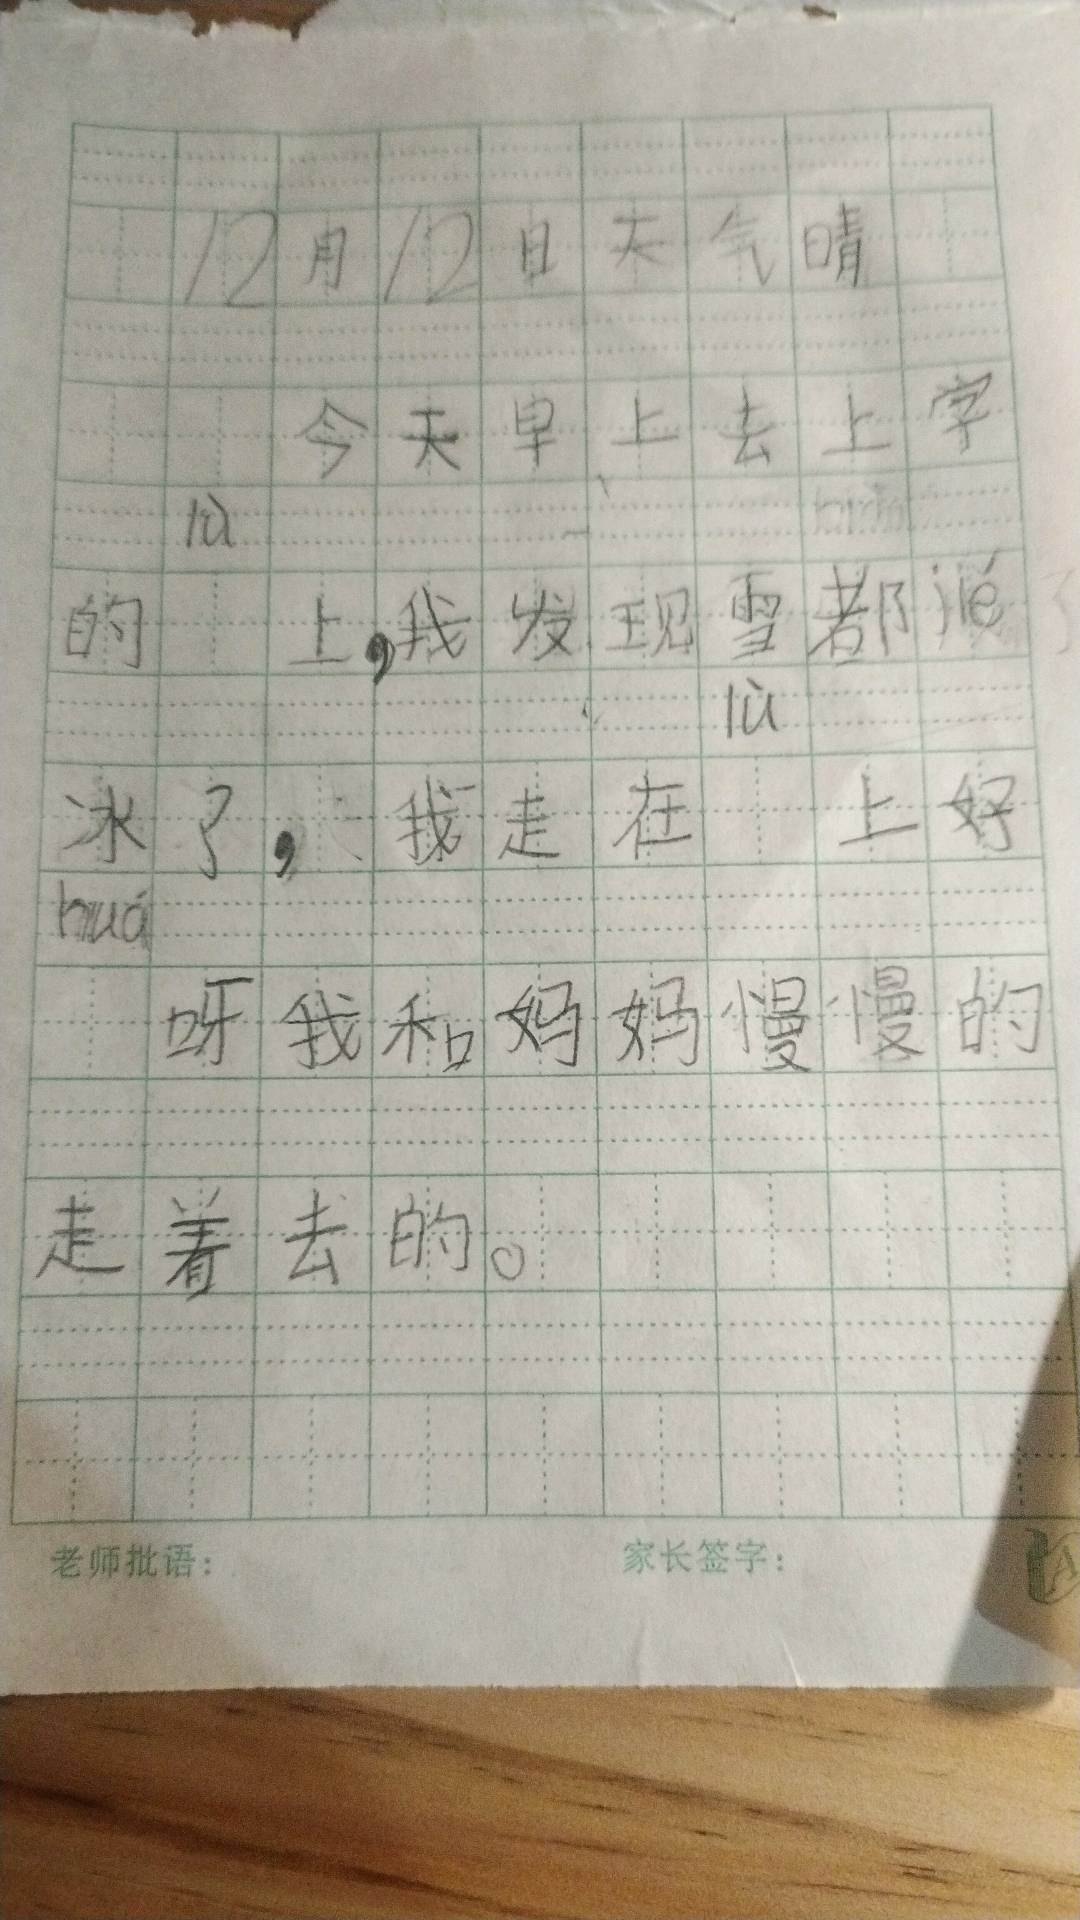 12月12日天气晴
今天早上去上字
lù
的 上,我发现雪都jié
lù
冰了,我走在 上好
huá
呀我和妈妈慢慢的
走着去的。
老师批语: 家长签字: